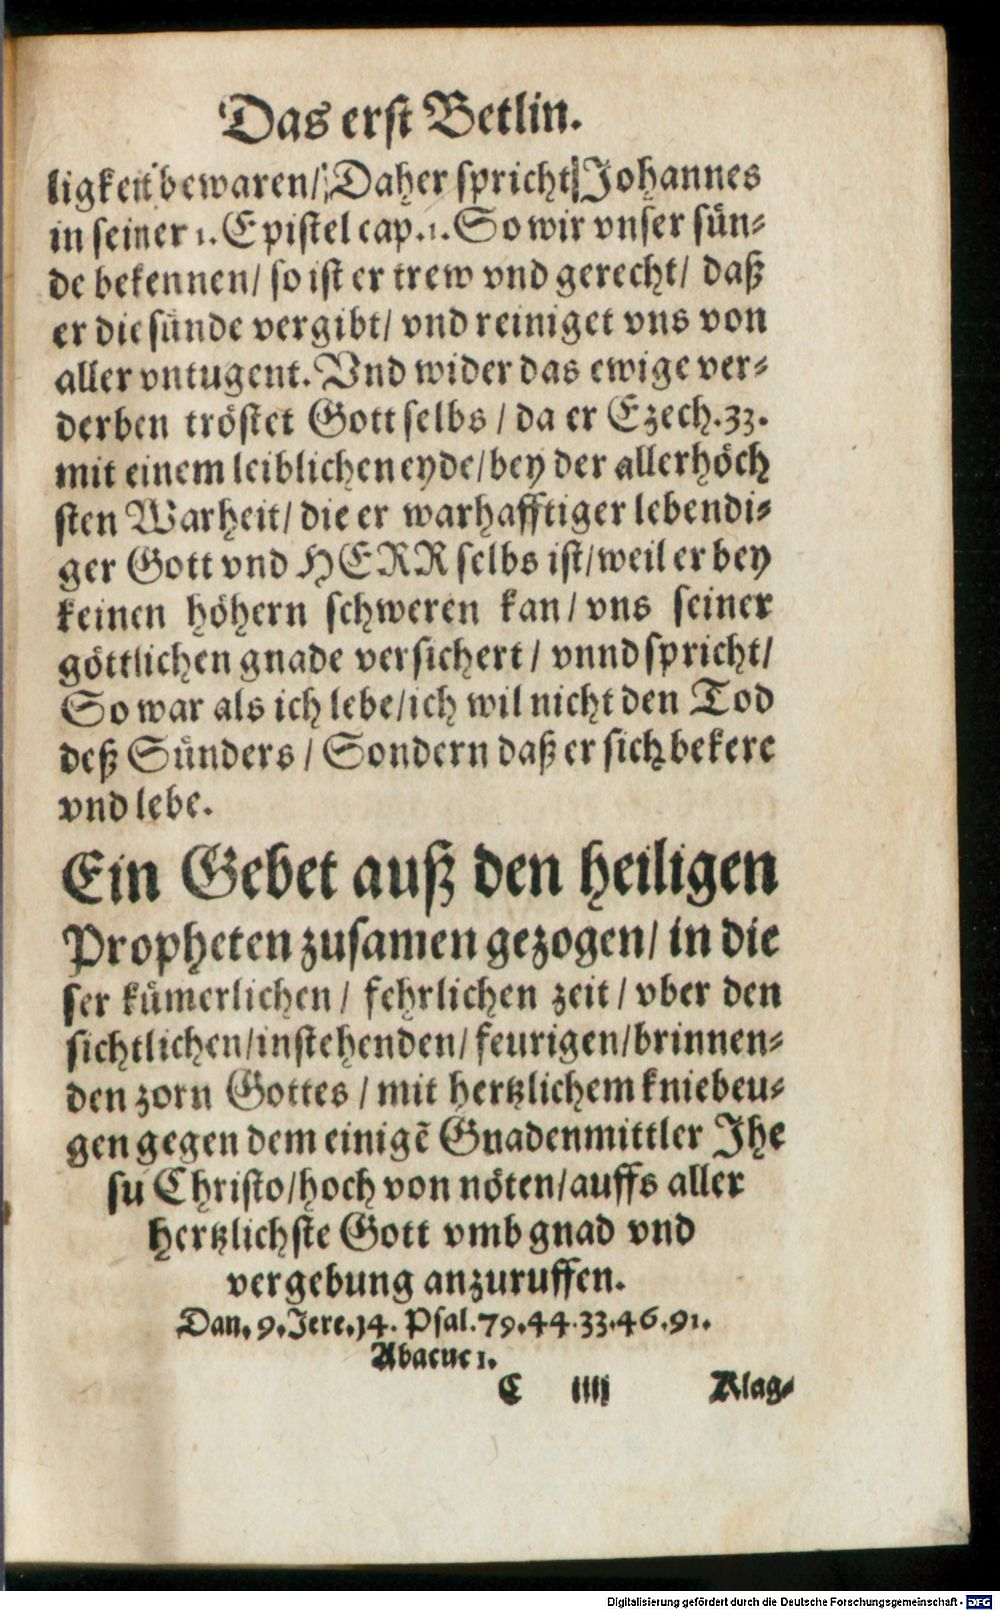 Das erst Betlin.
ligkeit bewaren/ Daher spricht Johannes
in seiner 1. Epistel cap. 1. So wir vnser sün-
de bekennen/ so ist er trew vnd gerecht/ daß
er die sünde vergibt/ vnd reiniget vns von
aller vntugent. Vnd wider das ewige ver-
derben tröstet Gott selbs / da er Ezech. 33.
mit einem leiblichen eyde/ bey der allerhöch
sten Warheit/ die er warhafftiger lebendi-
ger Gott vnd HERR selbs ist/ weil er bey
keinen höhern schweren kan / vns seiner
göttlichen gnade versichert / vnnd spricht/
So war als ich lebe/ ich wil nicht den Tod
deß Sünders / Sondern daß er sich bekere
vnd lebe.
Ein Gebet auß den heiligen
Propheten zusamen gezogen/ in die
ser kümerlichen / fehrlichen zeit / vber den
sichtlichen/ instehenden/ feurigen/ brinnen-
den zorn Gottes / mit hertzlichem kniebeu-
gen gegen dem einigẽ Gnadenmittler Jhe
su Christo/ hoch von nöten/ auffs aller
hertzlichste Gott vmb gnad vnd
vergebung anzuruffen.
Dan. 9. Jere. 14. Psal. 79. 44. 33. 46. 91.
Abacuc 1.
C iiij Klag-
Digitalisierung gefördert durch die Deutsche Forschungsgemeinschaft - DFG